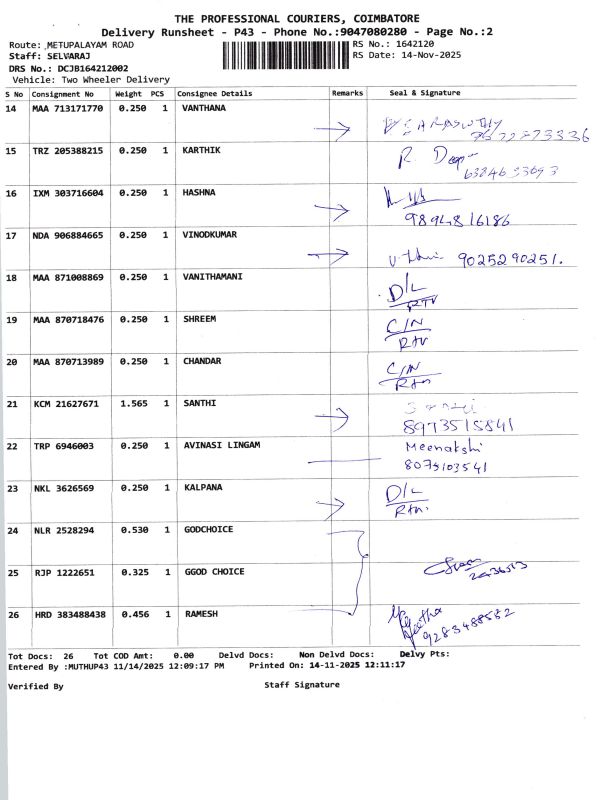 THE PROFESSIONAL COURIERS, COIMBATORE
Delivery Runsheet - P43 - Phone No.:9047080280 - Page No.:2
Route: METUPALAYAM ROAD
RS No.: 1642120
Staff: SELVARAJ
RS Date: 14-Nov-2025
DRS No.: DCJB164212002
Vehicle: Two Wheeler Delivery
S No Consignment No Weight PCS Consignee Details Remarks Seal & Signature
14 MAA 713171770 0.250 1 VANTHANA
15 TRZ 205388215 0.250 1 KARTHIK
16 IXM 303716604 0.250 1 HASHNA
9894816186
17 NDA 906884665 0.250 1 VINODKUMAR
9025290251.
18 MAA 871008869 0.250 1 VANITHAMANI D/L
RTN
19 MAA 870718476 0.250 1 SHREEM C/N
RTN
20 MAA 870713989 0.250 1 CHANDAR C/N
Rtn
21 KCM 21627671 1.565 1 SANTHI
8973515841
22 TRP 6946003 0.250 1 AVINASI LINGAM Meenakshi
8075103541
23 NKL 3626569 0.250 1 KALPANA D/L
Rtn.
24 NLR 2528294 0.530 1 GODCHOICE
25 RJP 1222651 0.325 1 GGOD CHOICE
26 HRD 383488438 0.456 1 RAMESH
Geetha
9283488582
Tot Docs: 26 Tot COD Amt: 0.00 Delvd Docs: Non Delvd Docs: Delvy Pts:
Entered By :MUTHUP43 11/14/2025 12:09:17 PM Printed On: 14-11-2025 12:11:17
Verified By Staff Signature